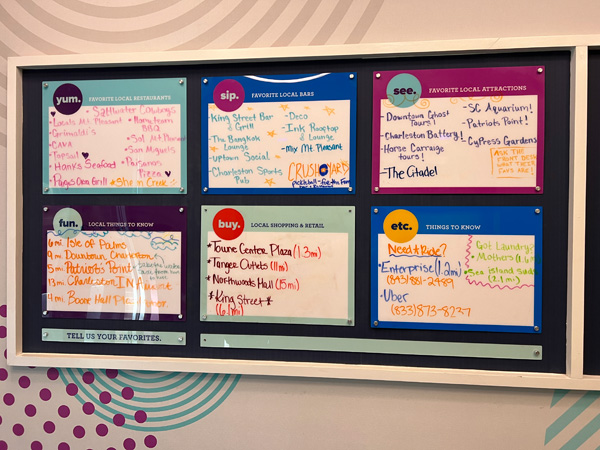 yum.
FAVORITE LOCAL RESTAURANTS
Saltwater Cowboys
Locals Mt. Pleasant
Grimaldi's
CAVA
Topsail
Hanks Seafood
Page's Okra Grill
Home team
BBQ
Sol Mt. Pleasant
San Miguels
Paisanos
Pizza
sip.
FAVORITE LOCAL BARS
King Street Bar
& Grill
The Bangkok
Lounge
Uptown Social
Charleston Sports
Pub
-Deco
-Ink Rooftop
Lounge
-Mix Mt. Pleasant
CRUSH
see.
FAVORITE LOCAL ATTRACTIONS
Downtown Ghost
tours!
Charleston Battery!
Horse Carriage
tours!
-The Citadel
-SC Aquarium!
-Patriots Point!
-Cypress Gardens
ASK THE
FRONT DESK
WHAT THEIR
FAVS ARE!
fun.
LOCAL THINGS TO KNOW
6 mi. Isle of Palms
9 mi. Downtown Charleston
5 mi Patriots Point
13 mi. Charleston INT Airport
4 mi. Boone Hall
buy.
LOCAL SHOPPING & RETAIL
*Towne Center Plaza (1.3mi)
*Tanger Outlets (11mi)
*Northwoods Mall (15mi)
*King Street*
(6.1mi)
etc.
THINGS TO KNOW
Need A Ride?
*Enterprise (1.2mi)
(843)881-2489
*Uber
(833)873-8237
Got Laundry?
Mothers
Sea Island Suds
(2.1mi)
TELL US YOUR FAVORITES.